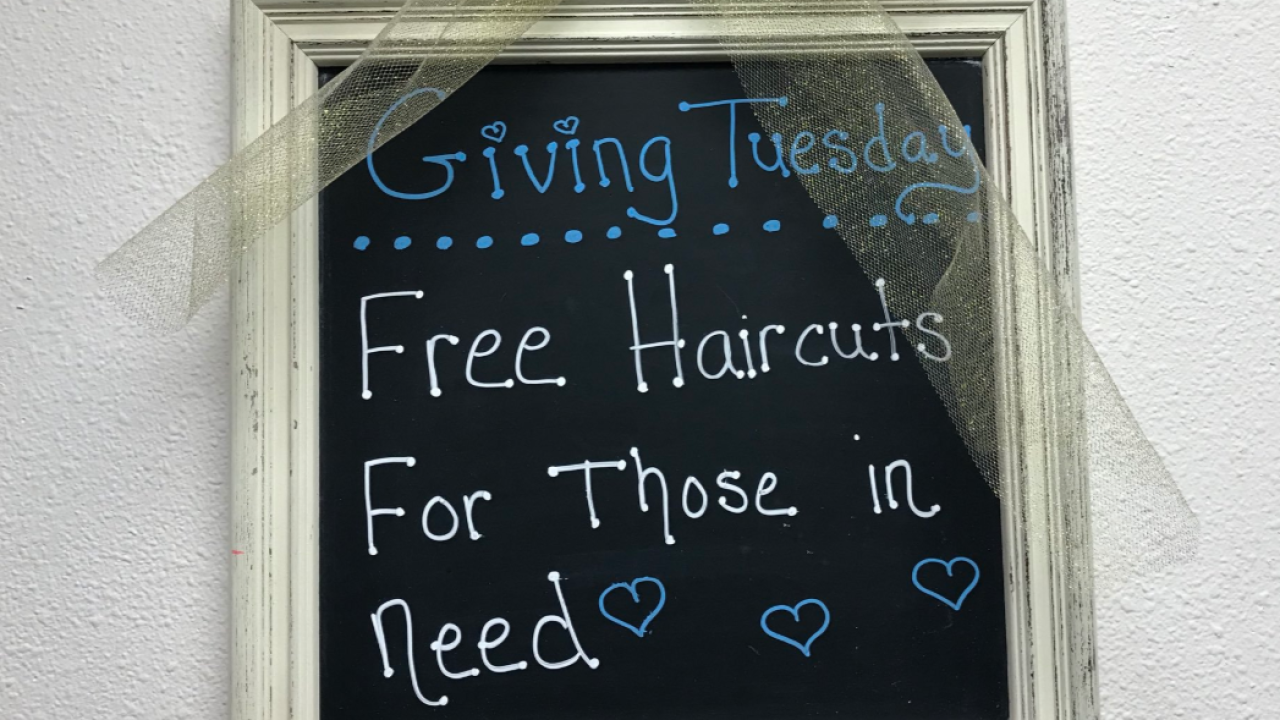 Giving Tuesday
Free Haircuts
For Those in
need